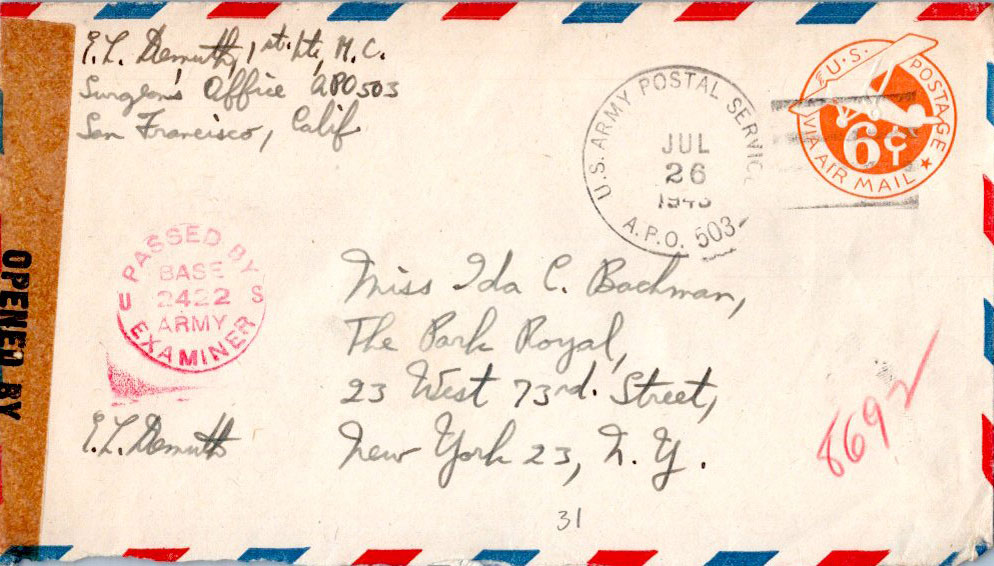 E.L. Demuth, 1st. Lt., M.C.
Surgeon's Office APO503
San Francisco, Calif
U.S. ARMY POSTAL SERVICE
JUL
26
1943
A.P.O. 503
U.S. POSTAGE
6¢
VIA AIR MAIL
OPENED BY
PASSED BY
BASE
U 2422 S
ARMY
EXAMINER
Miss Ida C. Bachman,
The Park Royal,
23 West 73rd. Street,
New York 23, N.Y.
E.L. Demuth
8692
31